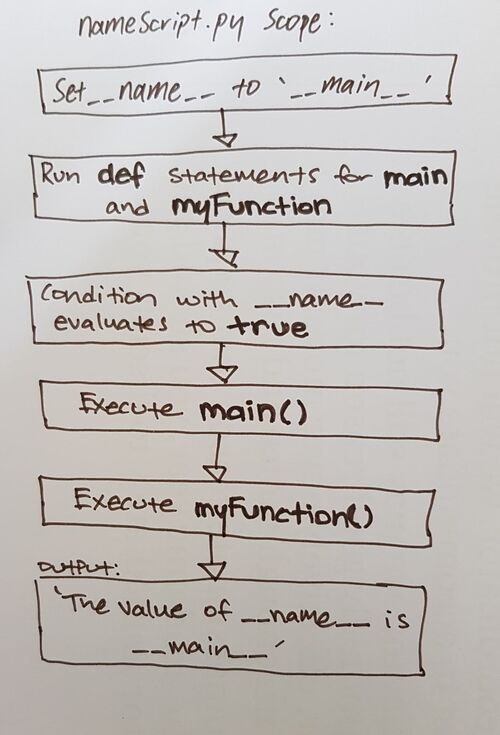 nameScript.py Scope:
Set __name__ to '__main__'
Run def statements for main
and myFunction
Condition with __name__
evaluates to true
Execute main()
Execute myFunction()
Output:
'The value of __name__ is
__main__'